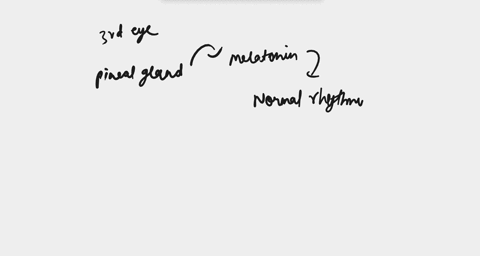 3rd eye
pineal gland
melatonin
Normal rhythm